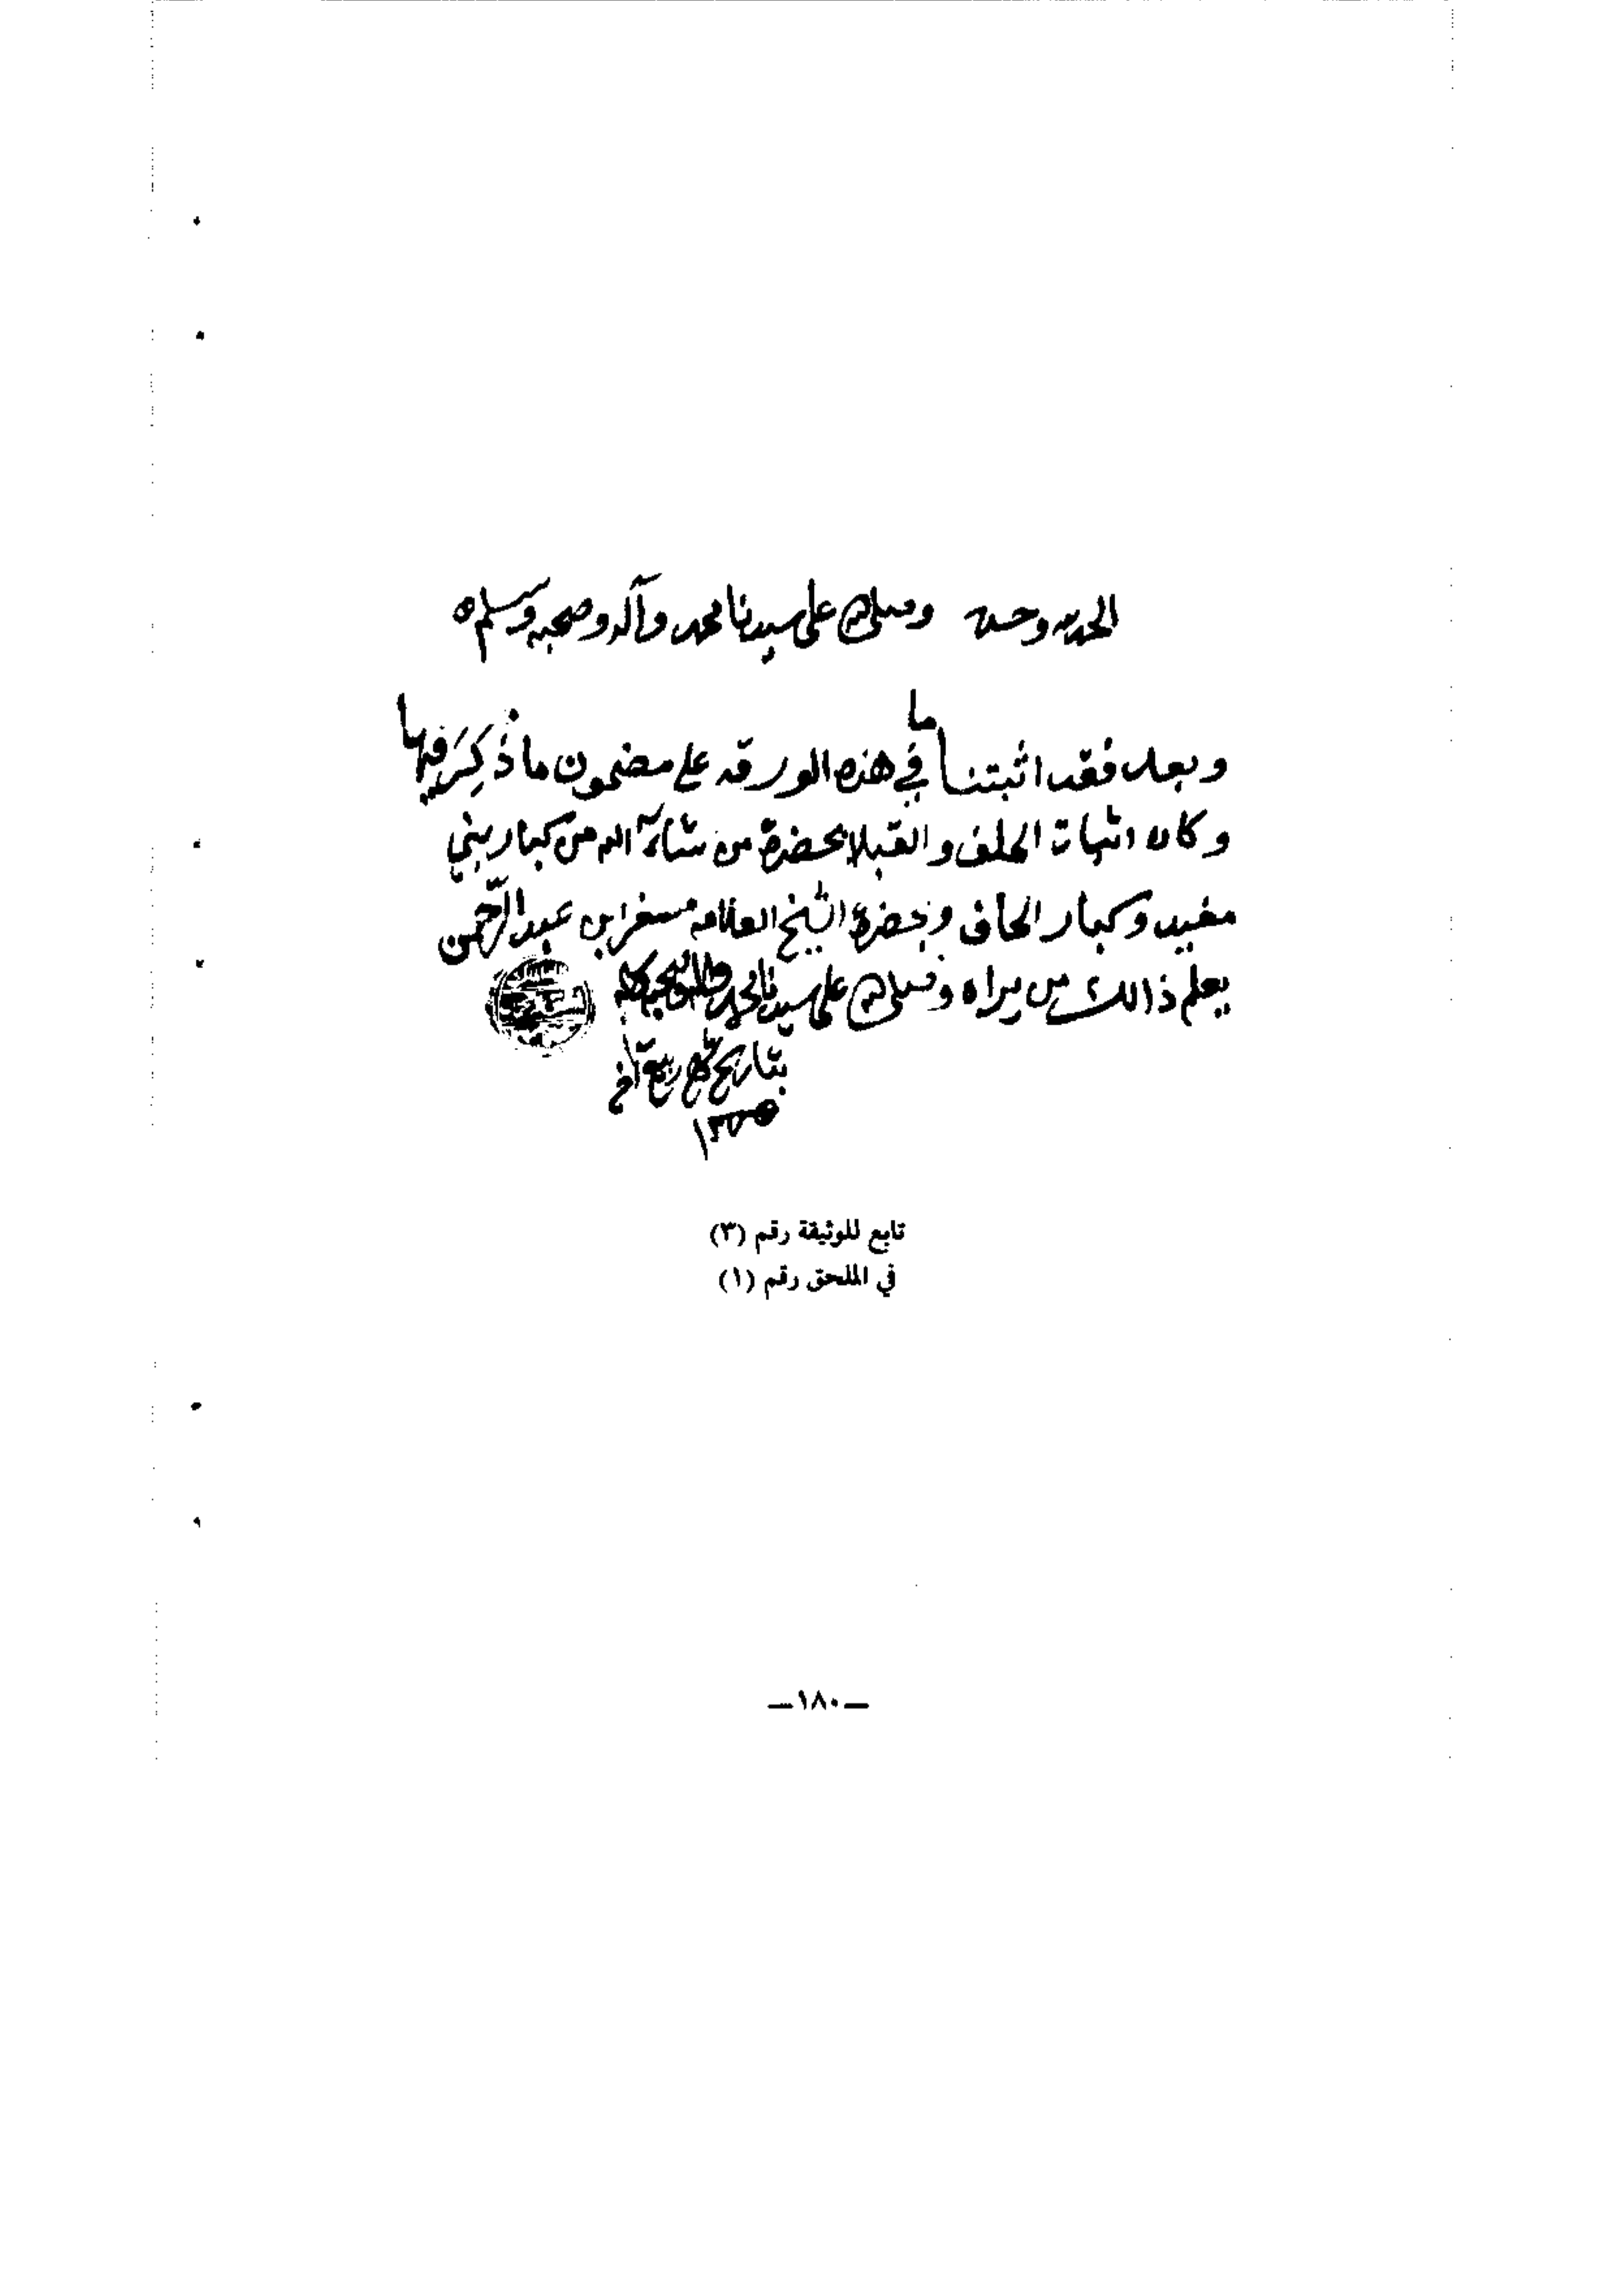 الحمد لله وحده وصلى الله على سيدنا محمد وآله وصحبه وسلم
وبعد فقد اثبتنا ما في هذه الورقه على مضمون ما ذُكِرَ فيها
وكان اثبات الحلف والقبلا بحضرة من شآء الله من كبار بني
مغيد وكبار الحاف وبحضرة الشيخ العلامه مسفر ابن عبد الرّحمن
يعلم ذالك من يراه وصلى الله على سيدنا محمد وآله وصحبه
بتاريخ ربيع آخر
١٣٥٥
تابع للوثيقة رقم (٣)
في الملحق رقم (١)
—١٨٠—